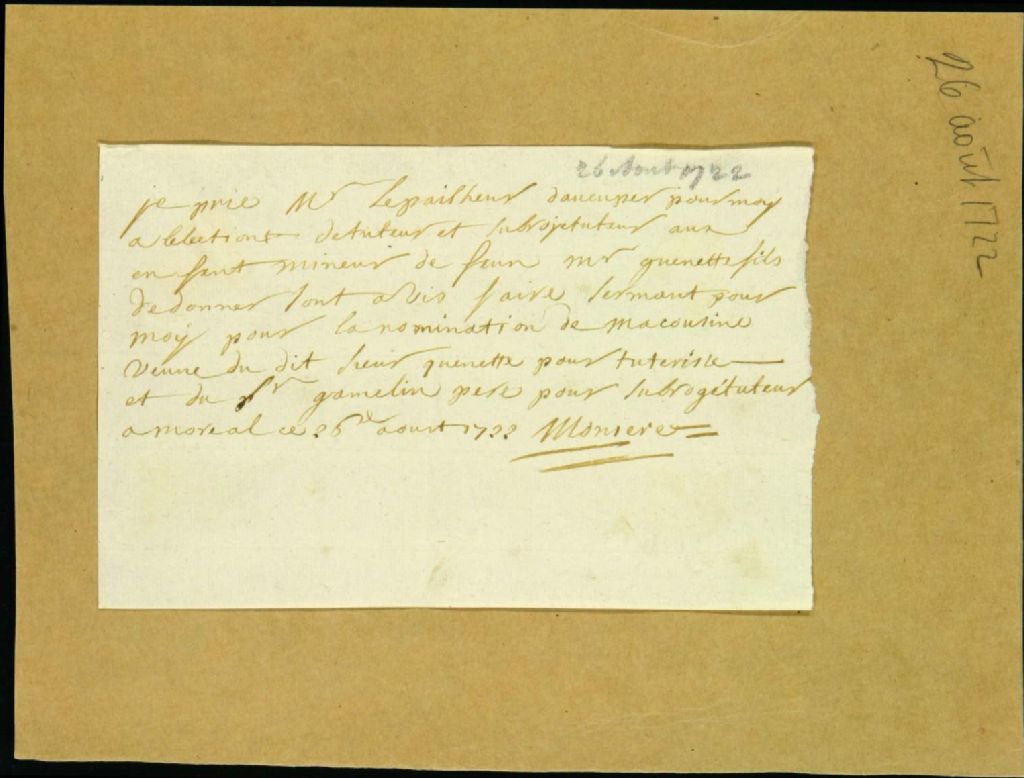 26 Aout 1722
je prie Mr Lepailheur daucuper pour moy
a lelectiont detuteur et subrojetuteur aux
enfant mineur de feux mr guenette fils
de donner sont avis faire sermant pour
moy pour la nomination de macousine
veuve du dit sieur guenette pour tuterisse
et du sr gamelin pere pour subrogétuteur
a moreal ce 26e aoust 1722 Moniere
26 août 1722